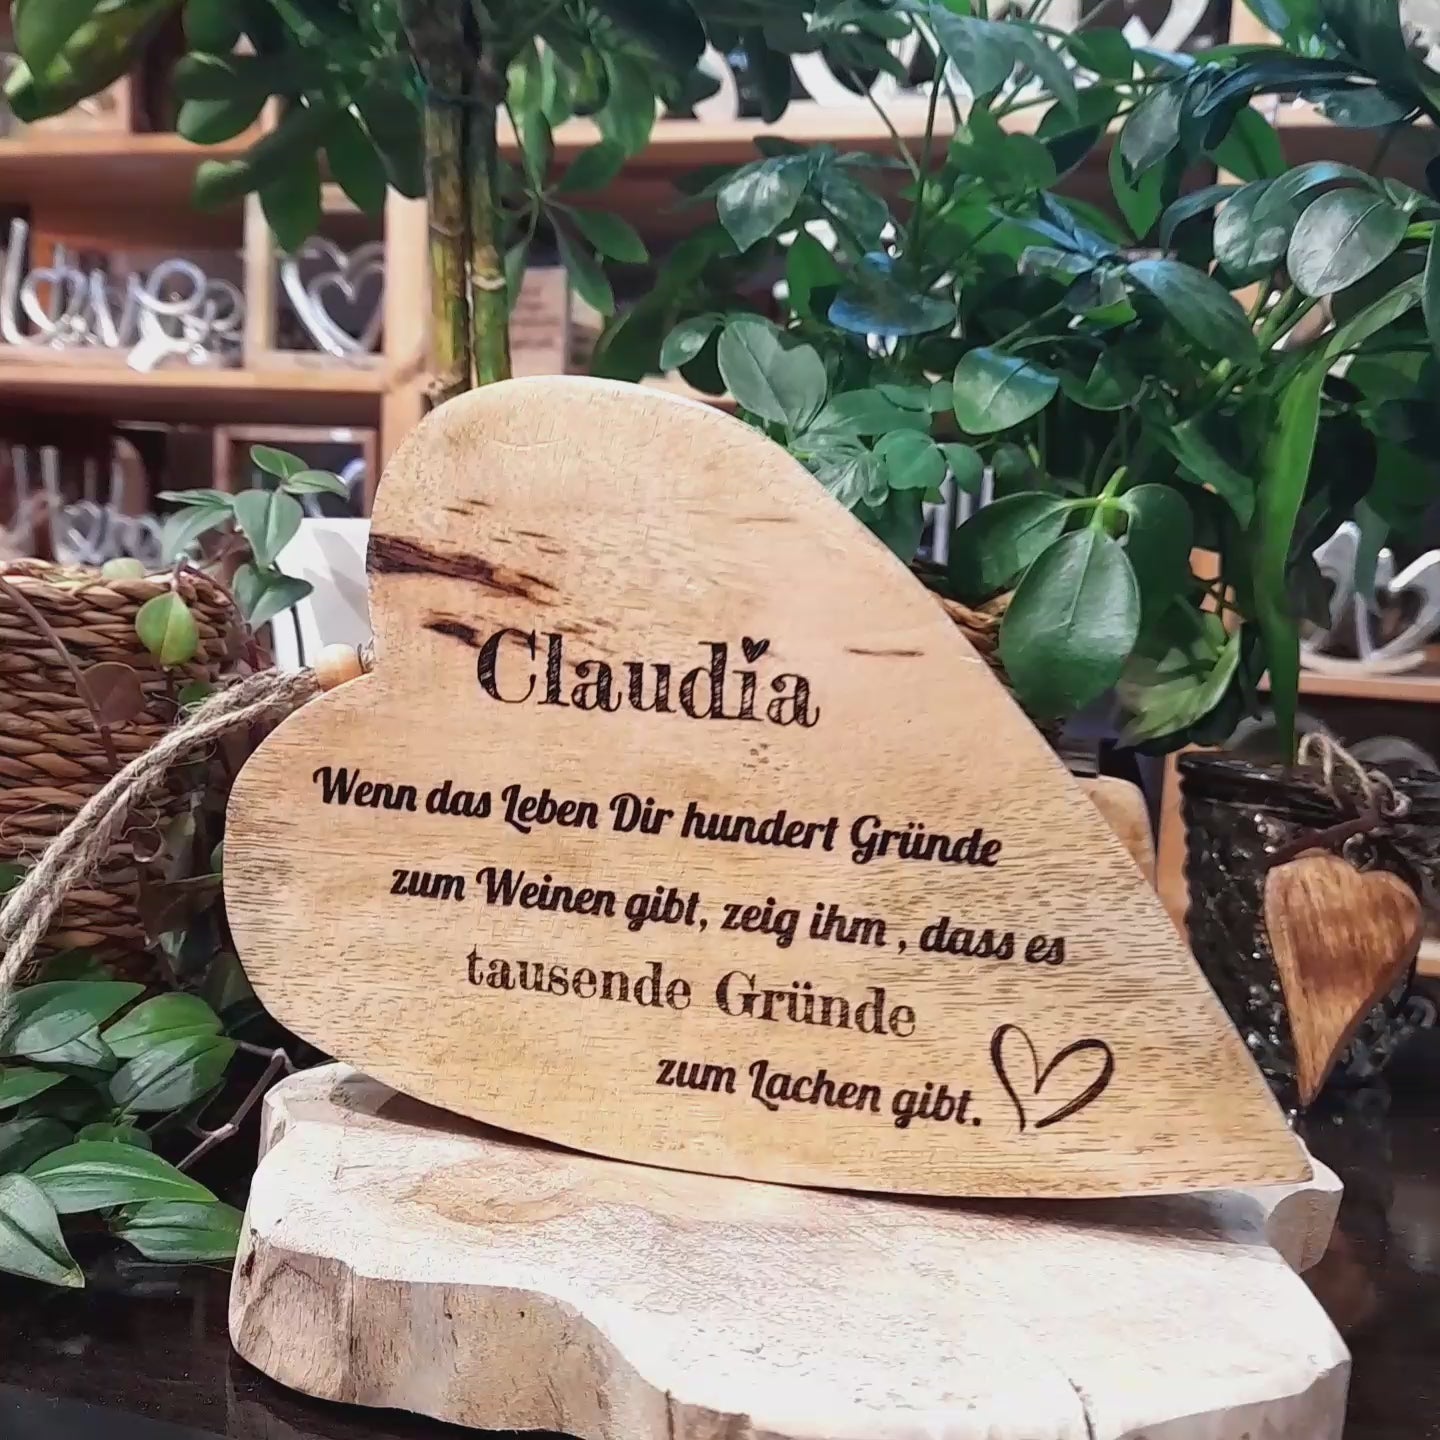 Claudia
Wenn das Leben Dir hundert Gründe
zum Weinen gibt, zeig ihm , dass es
tausende Gründe
zum Lachen gibt.
love